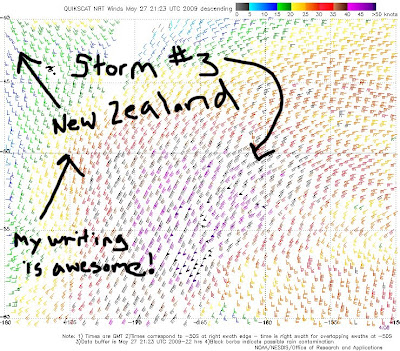 QUIKSCAT NRT Winds May 27 21:23 UTC 2009 descending
0 5 10 15 20 25 30 35 40 45 >50 knots
Storm #3
New Zealand
My writing
is awesome!
-180 -175 -170 -165 -160 -155
Note: 1) Times are GMT 2)Times correspond to -50S at right swath edge - time is right swath for overlapping swaths at -50S
3)Data buffer is May 27 21:23 UTC 2009-22 hrs 4)Black barbs indicate possible rain contamination
NOAA/NESDIS/Office of Research and Applications